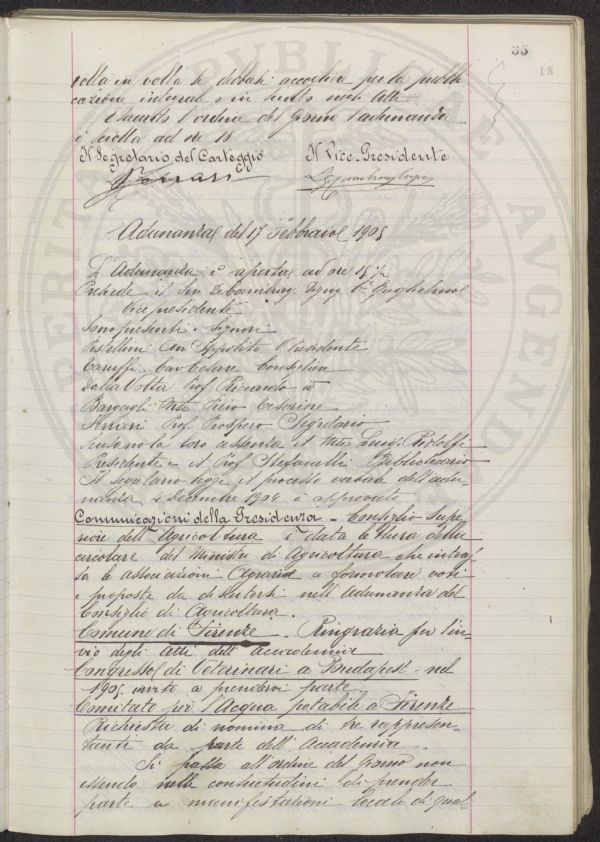 35
18
volta in volta si debbasi accogliere per la pubbli
cazione integrale o in sunto negli Atti
Esaurito l'ordine del giorno l'adunanza
è sciolta ad ore 18
Il Segretario del Carteggio Il Vice-Presidente
Adunanza del 17 Febbraio 1905
L'Adunanza è aperta ad ore 15 1/2
Presiede il Guglielmo
Vice presidente
Sono presenti i Signori
Pestellini Ippolito V. Presidente
Caruffi Cav Cesare Consigliere
Dalla Volta Prof Riccardo id
Bargagli Piero Tesoriere
Ferrari Prof Prospero Segretario
Scusano la loro assenza il Luigi Ridolfi
Presidente e il Prof Stefanelli Bibliotecario
Il Segretario legge il processo verbale dell'adu-
nanza 4 Decembre 1904 è approvato
Comunicazioni della Presidenza - Consiglio Supe
riore dell'Agricoltura è data lettura della
circolare del Ministro di Agricoltura che
le associazioni Agrarie a formulare voti
e proposte da discutersi nell'Adunanza del
Consiglio di Agricoltura.
Comune di Firenze - Ringrazia per l'in-
vio degli Atti dell'Accademia
Congresso di Veterinari a Budapest - nel
1905. invito a prendervi parte.
Comitato per l'Acqua potabile a Firenze
Richiesta di nomina di tre rappresen-
tanti da parte dell'Accademia.
Si passa all'ordine del Giorno non
essendo nelle consuetudini di prender
parte a manifestazioni locali di qual-
PUBLICAE
AUGENDAE